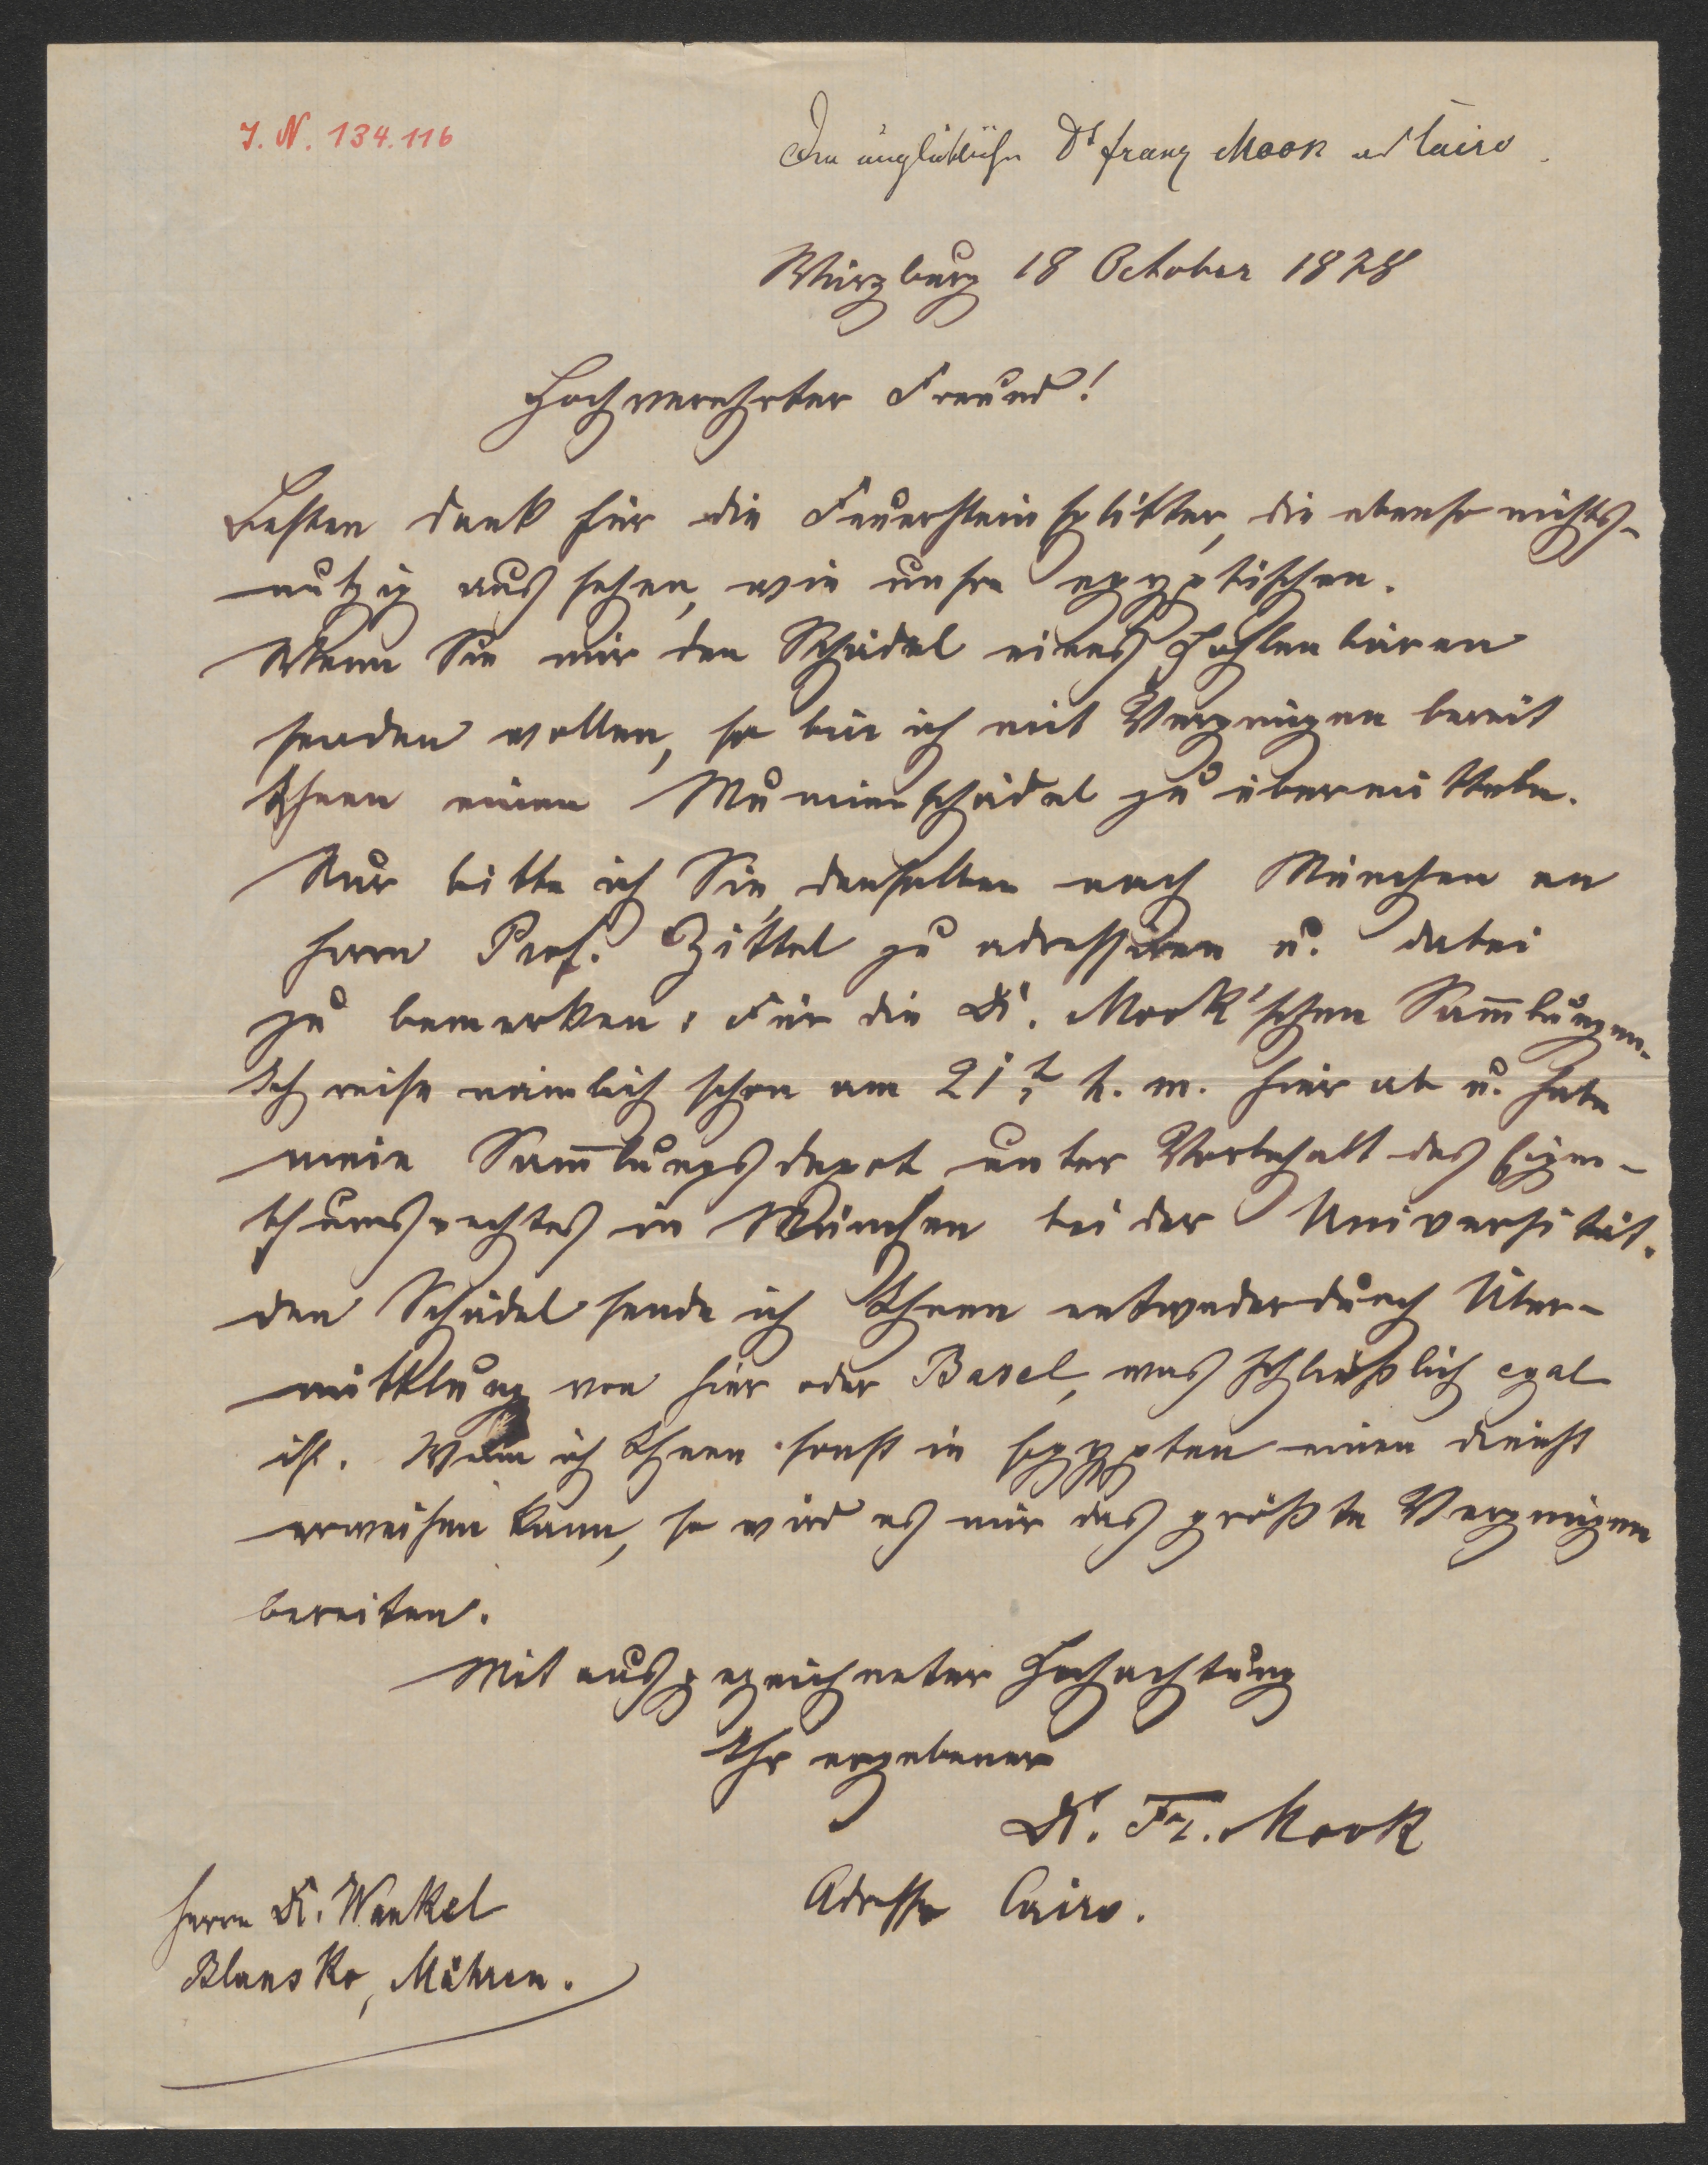 J. N. 134.116
Der unglückliche Dr Franz Mook aus Cairo.
Würzburg 18 October 1878
Hochverehrter Freund!
Besten Dank für die Feuersteinsplitter, die ebenso nichts-
nutzig aussehen, wie unsre egyptischen.
Wenn Sie mir den Schädel eines Höhlenbären
senden wollen, so bin ich mit Vergnügen bereit
Ihnen einen Mumienschädel zu übermitteln.
Nur bitte ich Sie, denselben nach München an
Herrn Prof. Zittel zu adressiren u. dabei
zu bemerken: Für die Dr. Mook'schen Sam̄lungen.
Ich reise nämlich schon am 21t h. m. hier ab u. habe
mein Sam̄lungsdepot unter Vorbehalt des Eigen-
thumsrechtes in München bei der Universität.
Den Schädel sende ich Ihnen entweder durch Über-
mittlung von hier oder Basel, was schließlich egal
ist. Wenn ich Ihnen sonst in Egypten einen Dienst
erweisen kann, so wird es mir das größte Vergnügen
bereiten.
Mit ausgezeichneter Hochachtung
Ihr ergebener
Dr. Fr. Mook
Adresse Cairo.
Herrn Dr. Wankel
Blansko, Mähren.